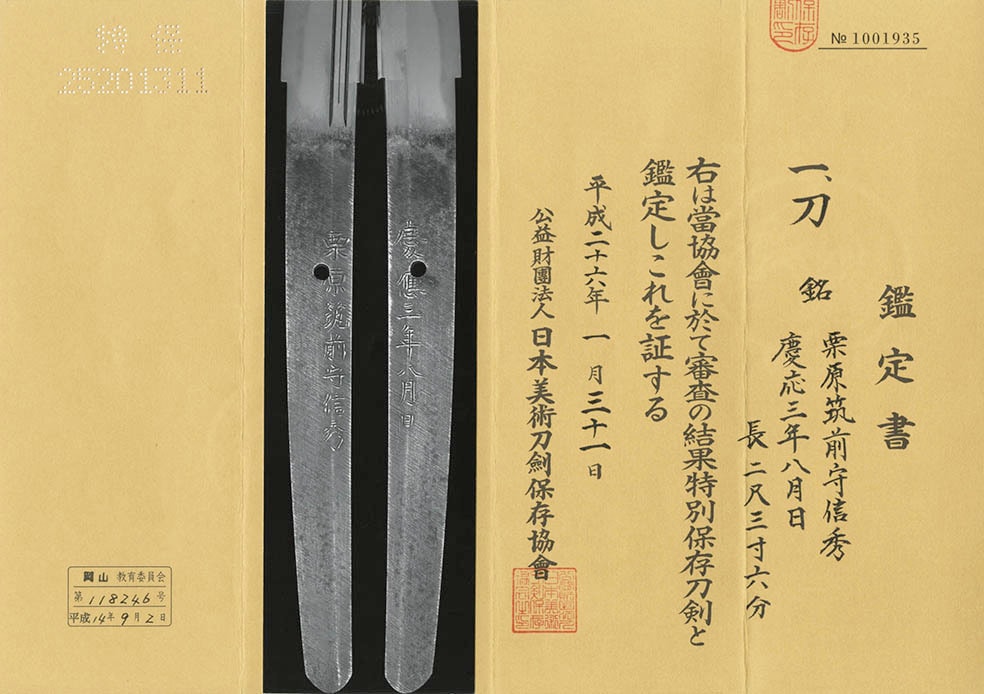 鑑定書
一、刀 銘 栗原筑前守信秀
慶応三年八月日
長二尺三寸六分
右は當協會に於て審査の結果特別保存刀剣と
鑑定しこれを証する
平成二十六年一月三十一日
公益財團法人日本美術刀劍保存協會
№ 1001935
慶應三年八月日
栗原筑前守信秀
特保
25201311
岡山 教育委員会
第118246号
平成14年9月2日